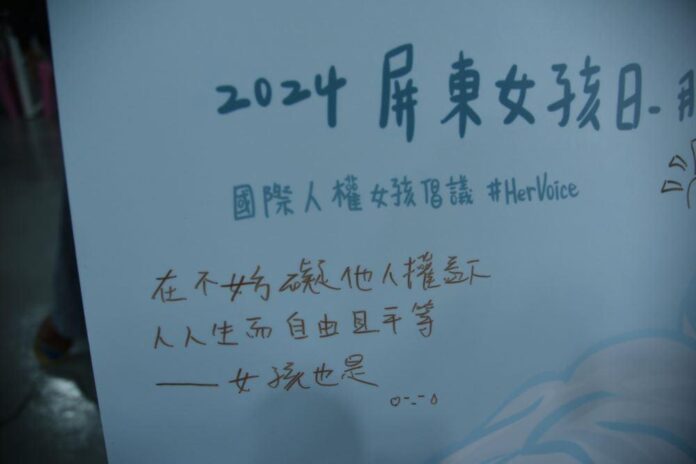 2024 屏東女孩日-
國際人權女孩倡議 #HerVoice
在不妨礙他人權益下
人人生而自由且平等
——女孩也是